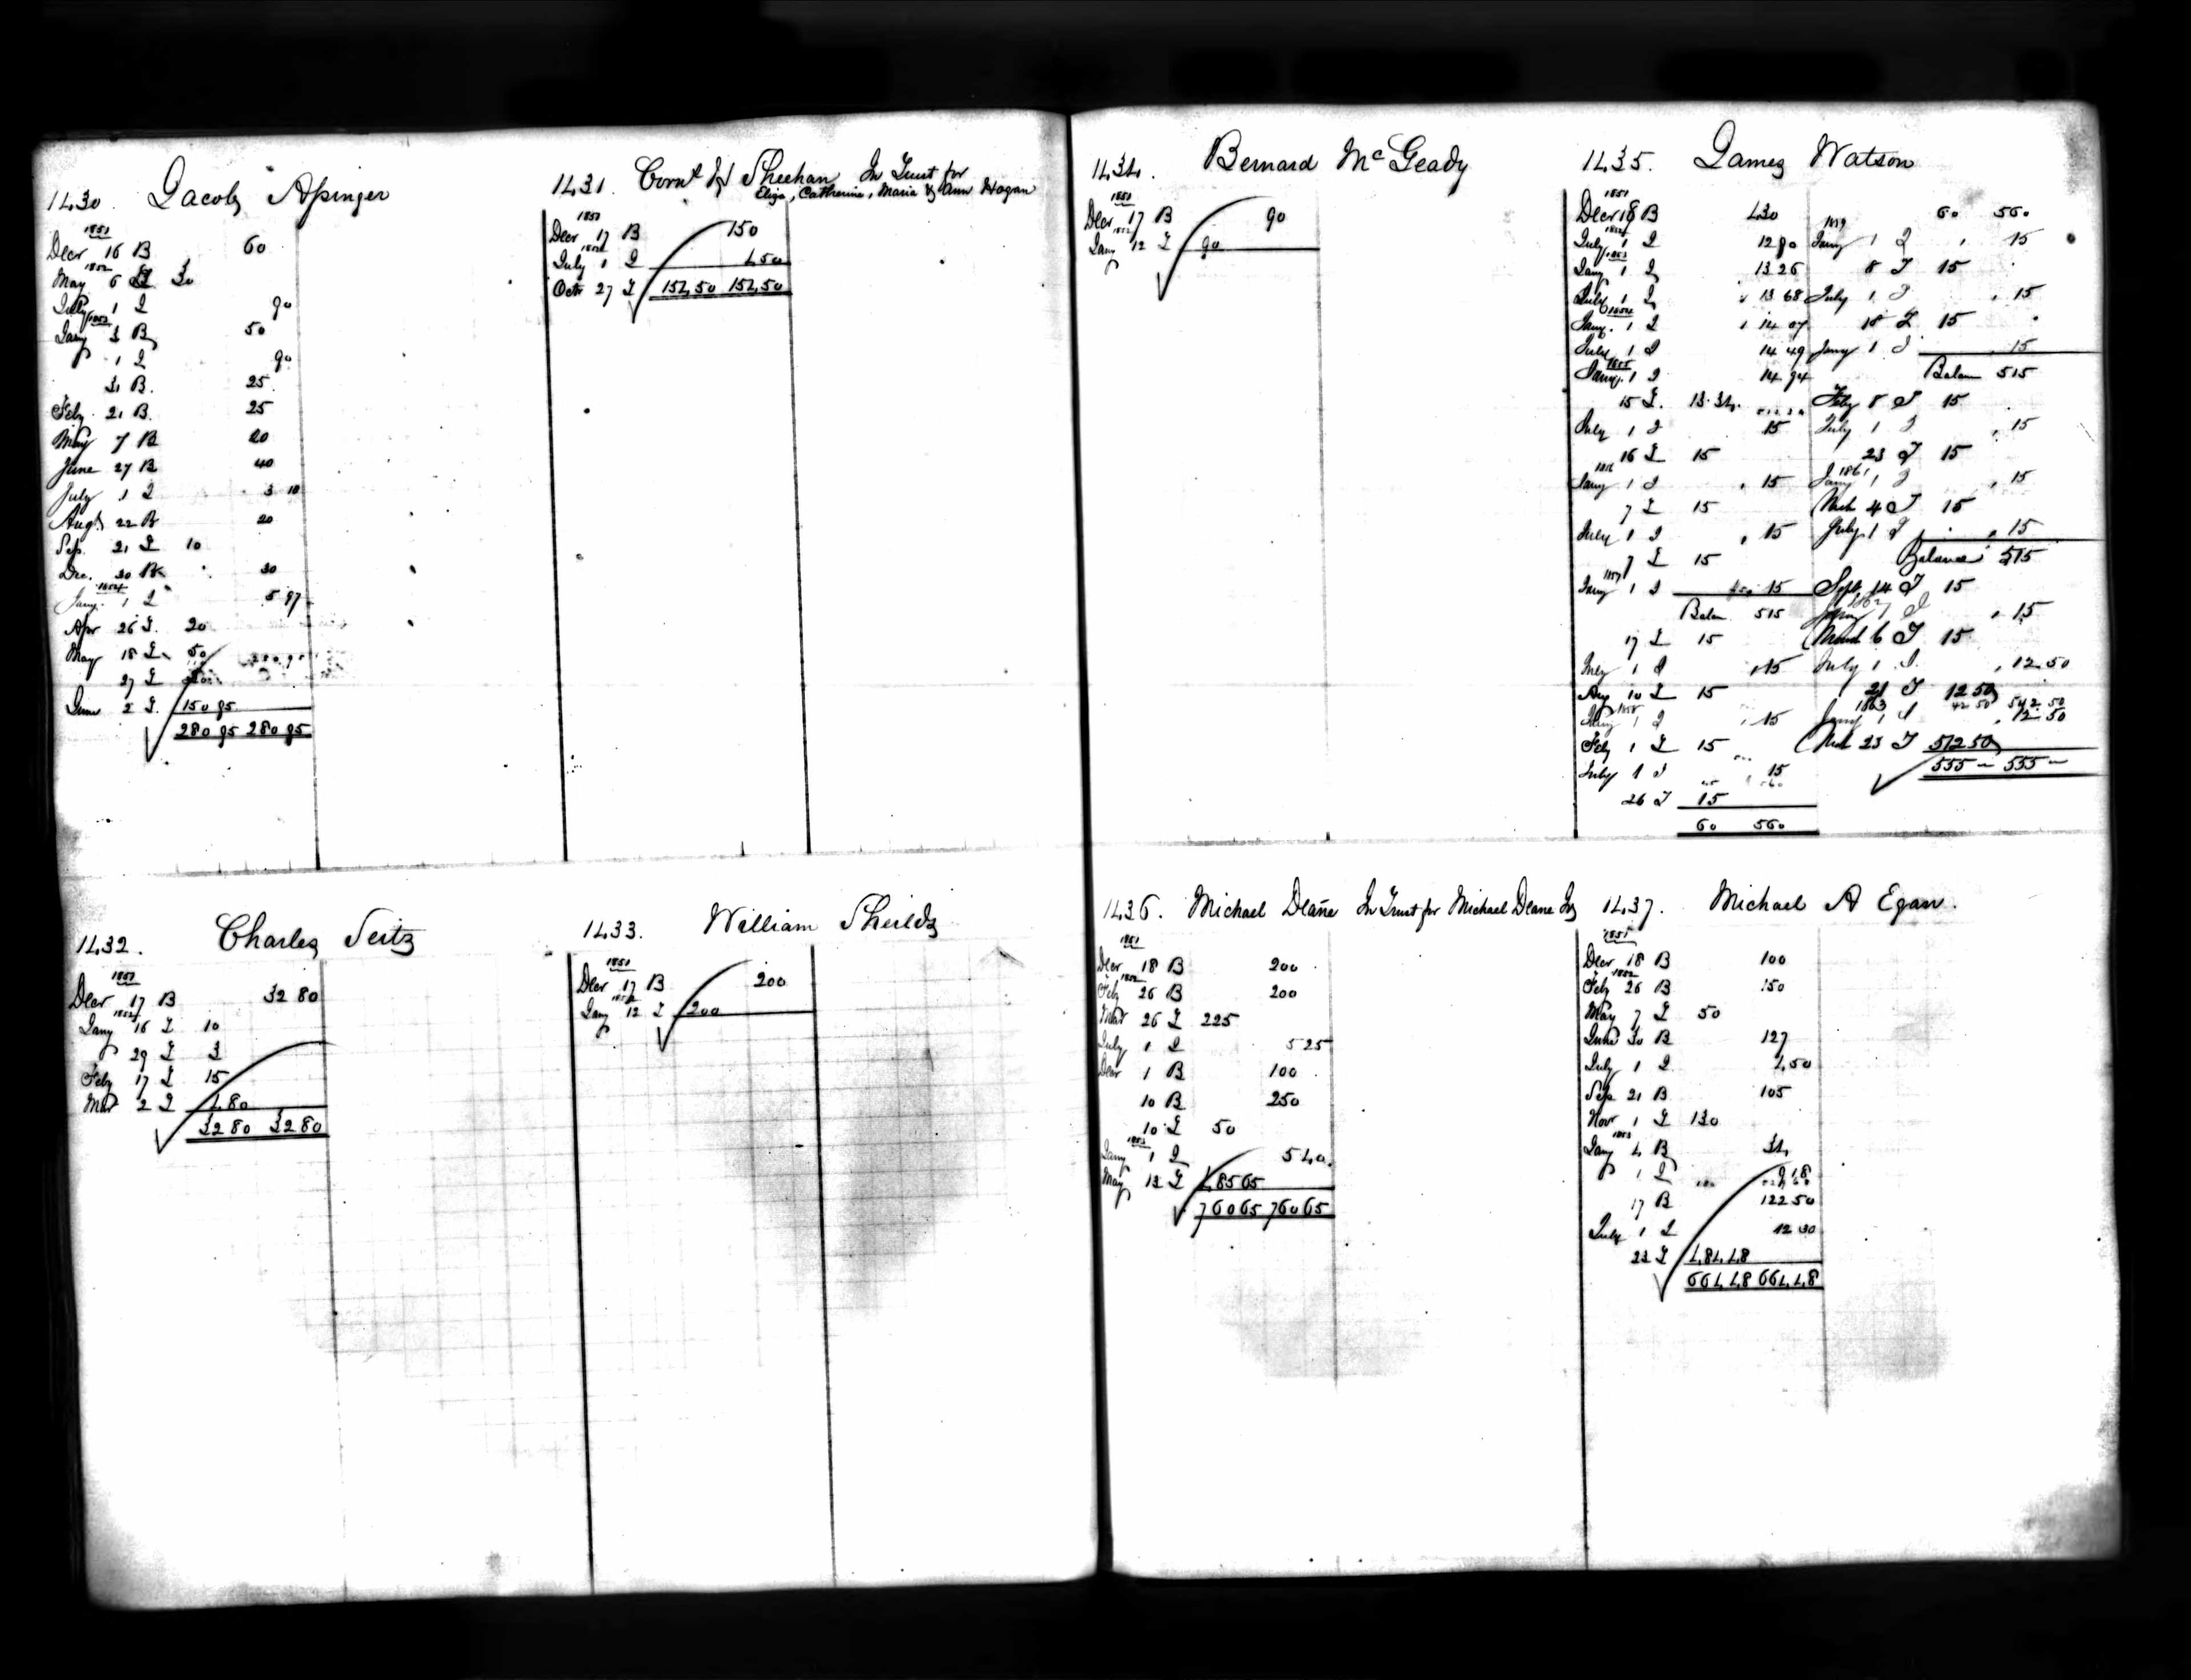 1430. Jacob Apinger
1851
Decr 16 B 60
1852
May 6 T 30
July 1 I 90
1853
Jany 3 B 50
1 I 90
31 B. 25
Feby 21 B. 25
May 7 B 20
June 27 B 40
July 1 I 3 10
Augt 22 B 20
Sep. 21 T 10
Dec. 30 B 30
1854
Jany. 1 I 5 97
Apr 26 T. 20
May 18 T 50
27 T
June 2 T. 150 95
280 95 280 95
1431. Corns H Sheehan In Trust for
Eliza, Catherine, Maria & Ann Hogan
1851
Decr 17 B 150
1852
July 1 I 4 50
Octr 27 T 154,50 154,50
1432. Charles Seitz
1851
Decr 17 B 32 80
1852
Jany 16 T 10
29 T 3
Feby 17 T 15
Mar 2 T 4 80
32 80 32 80
1433. William Sheilds
1851
Decr 17 B 200
1852
Jany 12 T 200
1434. Bernard McGeady
1851
Decr 17 B 90
1852
Jany 12 T 90
1435. James Watson
1851
Decr 18 B 430
1852
July 1 I 12 90
1853
Jany 1 I 13 26
July 1 I 13 68
1854
Jany. 1 I 14 07
July 1 I 14 49
1855
Jany. 1 I 14 94
15 T. 13 34
July 1 I 15
16 T 15
1856
Jany 1 I 15
7 T 15
July 1 I 15
7 T 15
1857
Jany 1 I 15
Balan 515
17 T 15
July 1 I 15
Aug 10 T 15
1858
Jany 1 I 15
Feby 1 T 15
July 1 I 15
26 T 15
60 560
60 560
1859
Jany 1 I 15
8 T 15
July 1 I 15
18 T 15
Jany 1 I 15
Balan 515
Feby 8 T 15
July 1 I 15
23 T 15
1861
Jany 1 I 15
Mch 4 T 15
July 1 I 15
Balance 515
Sept 14 T 15
1862
Jany 1 I 15
March 6 T 15
July 1 I 12.50
21 T 12 50
42 50 542 50
1863
Jany 1 I 12 50
Mch 23 T 512 50
555 - 555 -
1436. Michael Deane In Trust for Michael Deane Jr
1851
Decr 18 B 200
1852
Feby 26 B 200
Mar 26 T 225
July 1 I 5 25
Decr 1 B 100
10 B 250
10 T 50
1853
Jany 1 I 5 40
May 13 T 485 65
760 65 760 65
1437. Michael A Egan.
1851
Decr 18 B 100
1852
Feby 26 B 150
May 7 T 50
June 30 B 127
July 1 I 4,50
Sep 21 B 105
Nov 1 T 130
1853
Jany 4 B 34
1 I 9 18
17 B 122 50
July 1 I 12 30
23 T 484,48
664,48 664,48